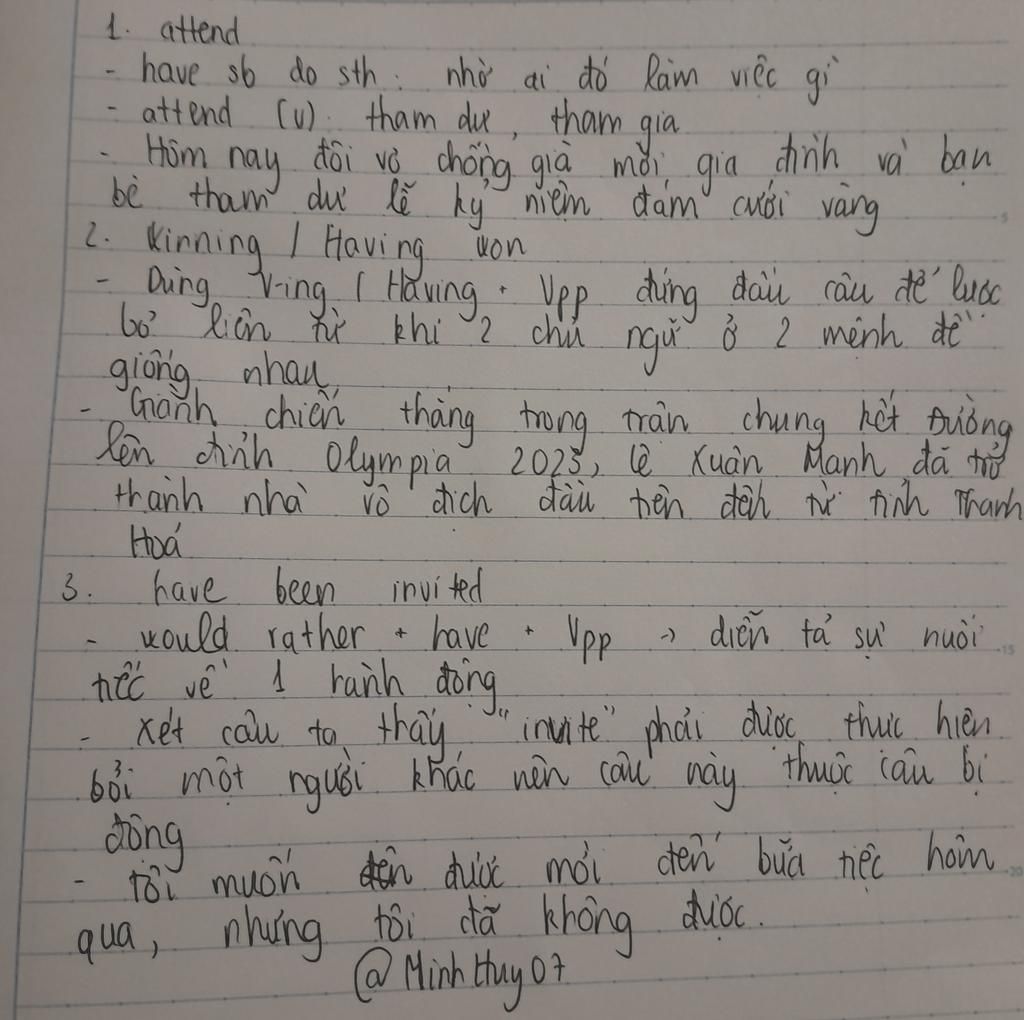 1. attend
- have sb do sth : nhờ ai đó làm việc gì
- attend (v) : tham dự, tham gia
- Hôm nay đôi vợ chồng già mời gia đình và bạn
bè tham dự lễ kỷ niệm đám cưới vàng
2. Winning / Having won
- Dùng V-ing / Having + Vpp đứng đầu câu để lược
bỏ liên từ khi 2 chủ ngữ ở 2 mệnh đề
giống nhau
- Giành chiến thắng trong trận chung kết Đường
lên đỉnh Olympia 2023, Lê Xuân Mạnh đã trở
thành nhà vô địch đầu tiên đến từ tỉnh Thanh
Hoá
3. have been invited
- would rather + have + Vpp -> diễn tả sự nuối
tiếc về 1 hành động
- Xét câu ta thấy "invite" phải được thực hiện
bởi một người khác nên câu này thuộc câu bị
động
- Tôi muốn được mời đến bữa tiệc hôm
qua, nhưng tôi đã không được.
@MinhHuy07